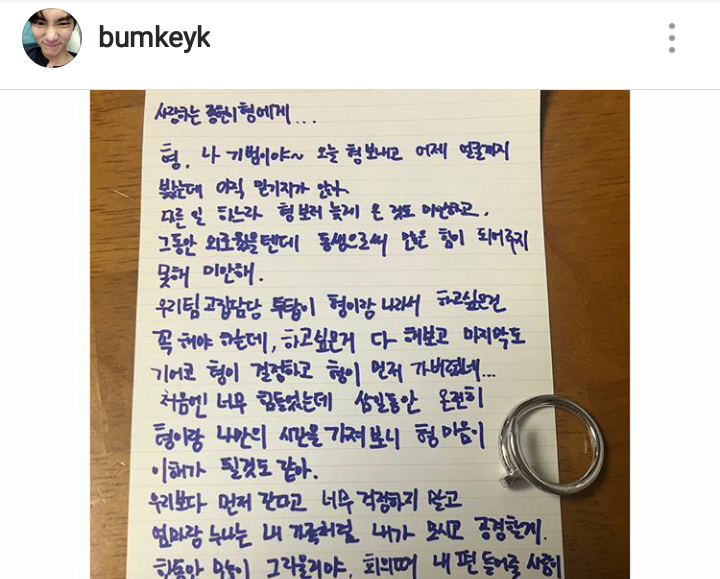 bumkeyk
사랑하는 종현이형에게...
형. 나 기범이야~ 오늘 형 보내고 어제 얼굴까지
봤는데 아직 믿기지가 않아.
다른 일 하느라 형보러 늦게 온 것도 미안하고,
그동안 외로웠을텐데 동생으로써 많은 힘이 되어주지
못해 미안해.
우리팀 고집담당 투탑이 형이랑 나라서 하고싶은건
꼭 해야 하는데, 하고싶은거 다 해보고 마지막도
기어코 형이 결정하고 형이 먼저 가버렸네...
처음엔 너무 힘들었는데 삼일동안 온전히
형이랑 나만의 시간을 가져보니 형 마음이
이해가 될것도 같아.
우리보다 먼저 간다고 너무 걱정하지 말고
엄마랑 누나는 내 가족처럼 내가 모시고 공경할게.
한동안 많이 그리울거야, 회의때 내 편 들어줄 사람이